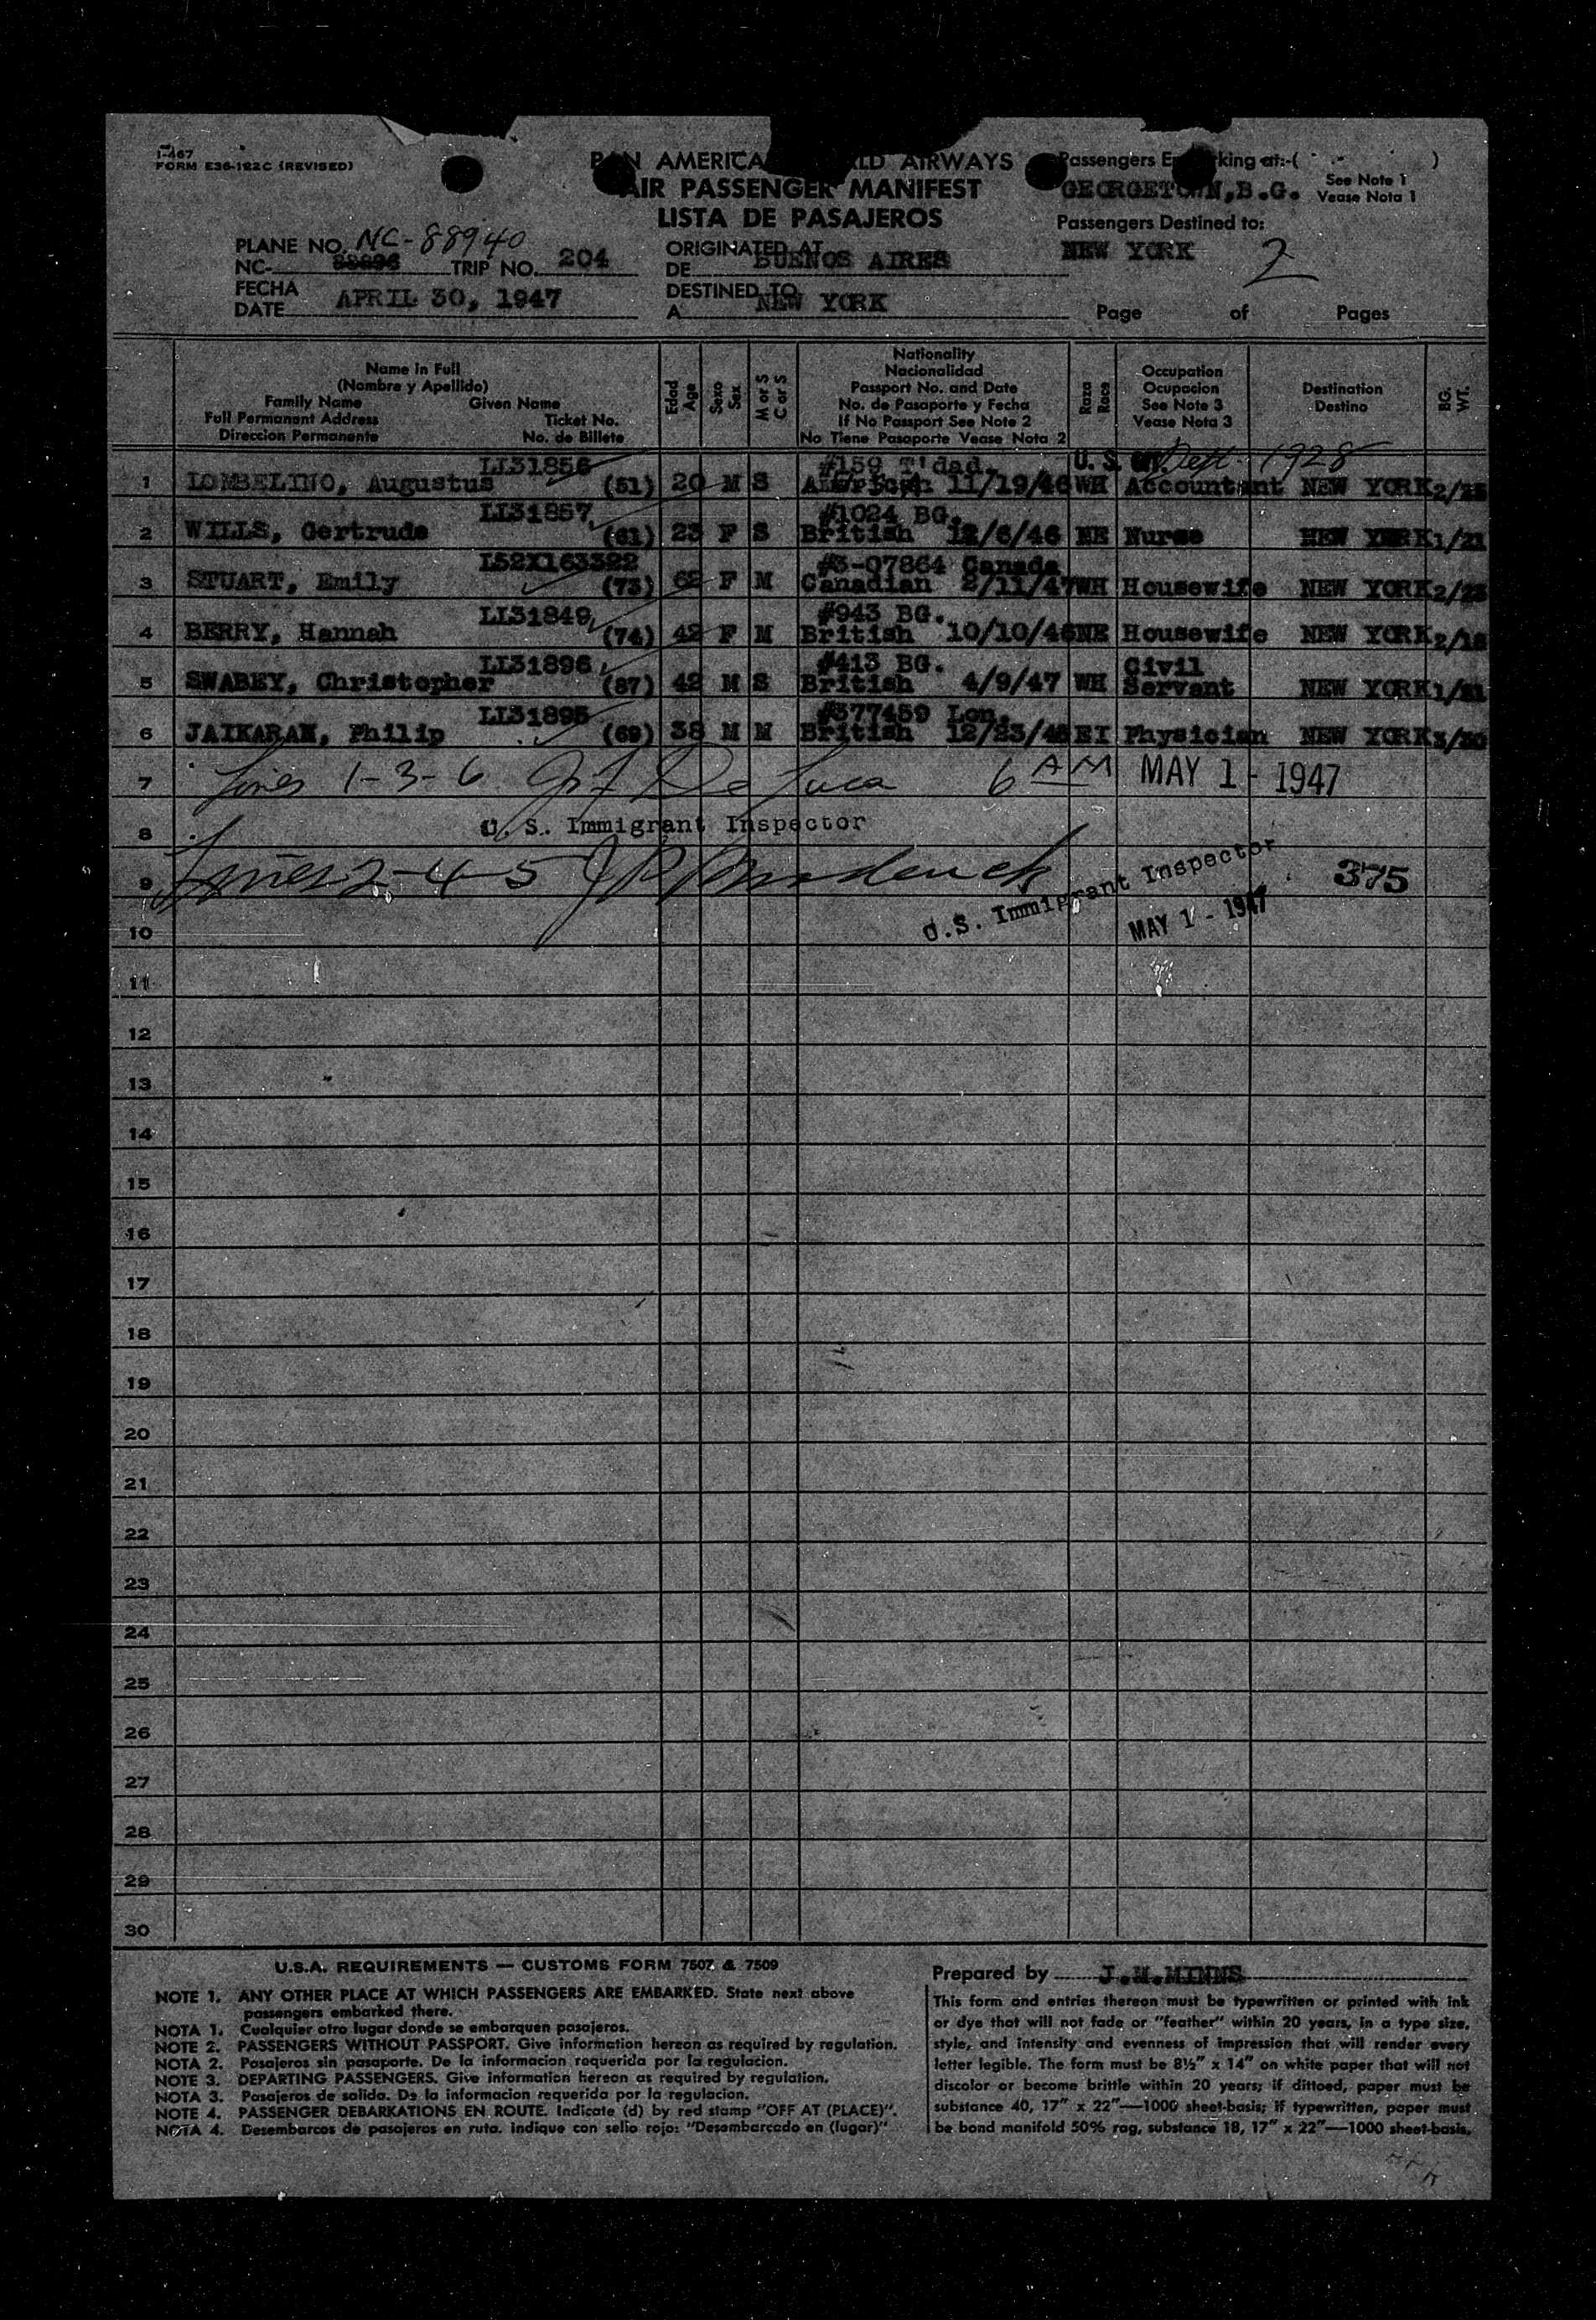 I-467
FORM E36-122C (REVISED)
AMERICA AIRWAYS
AIR PASSENGER MANIFEST
LISTA DE PASAJEROS
Passengers at:-( )
GEORGETOWN,B.G.
See Note 1
Vease Nota 1
Passengers Destined to:
NEW YORK
2
PLANE NO. NC-88940
NC- TRIP NO. 204
FECHA
DATE APRIL 30, 1947
ORIGINATED AT
DE BUENOS AIRES
DESTINED TO
A NEW YORK
Page of Pages
Name in Full
(Nombre y Apellido)
Family Name Given Name
Full Permanent Address Ticket No.
Direccion Permanente No. de Billete
Edad
Age
Sexo
Sex
M or S
C or S
Nationality
Nacionalidad
Passport No. and Date
No. de Pasaporte y Fecha
If No Passport See Note 2
No Tiene Pasaporte Vease Nota 2
Raza
Race
Occupation
Ocupacion
See Note 3
Vease Nota 3
Destination
Destino
BG.
WT.
LI31856 #159 T'dad. U. S. 1928
1 LOMBELINO, Augustus (51) 20 M S 11/19/46 WH Accountant NEW YORK
LI31857 #1024 BG.
2 WILLS, Gertrude (61) 23 F S British 12/6/46 NE Nurse NEW YORK 1/21
L52X163322 #3-07864 Canada
3 STUART, Emily (73) 62 F M Canadian 2/11/47 WH Housewife NEW YORK 2/23
LI31849 #943 BG.
4 BERRY, Hannah (74) 42 F M British 10/10/46 NE Housewife NEW YORK 2/18
LI31896 #413 BG. Civil
5 SWABEY, Christopher (87) 42 M S British 4/9/47 WH Servant NEW YORK 1/21
LI31895 #377459 Lon.
6 JAIKARAN, Philip (69) 38 M M British EI Physician NEW YORK
7 Lines 1-3-6 De Luca 6 AM MAY 1 - 1947
8 U. S. Immigrant Inspector
9 Lines 2-4-5 U.S. Immigrant Inspector 375
10 MAY 1 - 1947
11
12
13
14
15
16
17
18
19
20
21
22
23
24
25
26
27
28
29
30
U.S.A. REQUIREMENTS — CUSTOMS FORM 7507 & 7509
NOTE 1. ANY OTHER PLACE AT WHICH PASSENGERS ARE EMBARKED. State next above
passengers embarked there.
NOTA 1. Cualquier otro lugar donde se embarquen pasajeros.
NOTE 2. PASSENGERS WITHOUT PASSPORT. Give information hereon as required by regulation.
NOTA 2. Pasajeros sin pasaporte. De la informacion requerida por la regulacion.
NOTE 3. DEPARTING PASSENGERS. Give information hereon as required by regulation.
NOTA 3. Pasajeros de salida. De la informacion requerida por la regulacion.
NOTE 4. PASSENGER DEBARKATIONS EN ROUTE. Indicate (d) by red stamp "OFF AT (PLACE)".
NOTA 4. Desembarcos de pasajeros en ruta. Indique con sello rojo: "Desembarcado en (lugar)"
Prepared by J.M.MINNS
This form and entries thereon must be typewritten or printed with ink
or dye that will not fade or "feather" within 20 years, in a type size,
style, and intensity and evenness of impression that will render every
letter legible. The form must be 8½" x 14" on white paper that will not
discolor or become brittle within 20 years; if dittoed, paper must be
substance 40, 17" x 22"—1000 sheet-basis; if typewritten, paper must
be bond manifold 50% rag, substance 18, 17" x 22"—1000 sheet-basis.